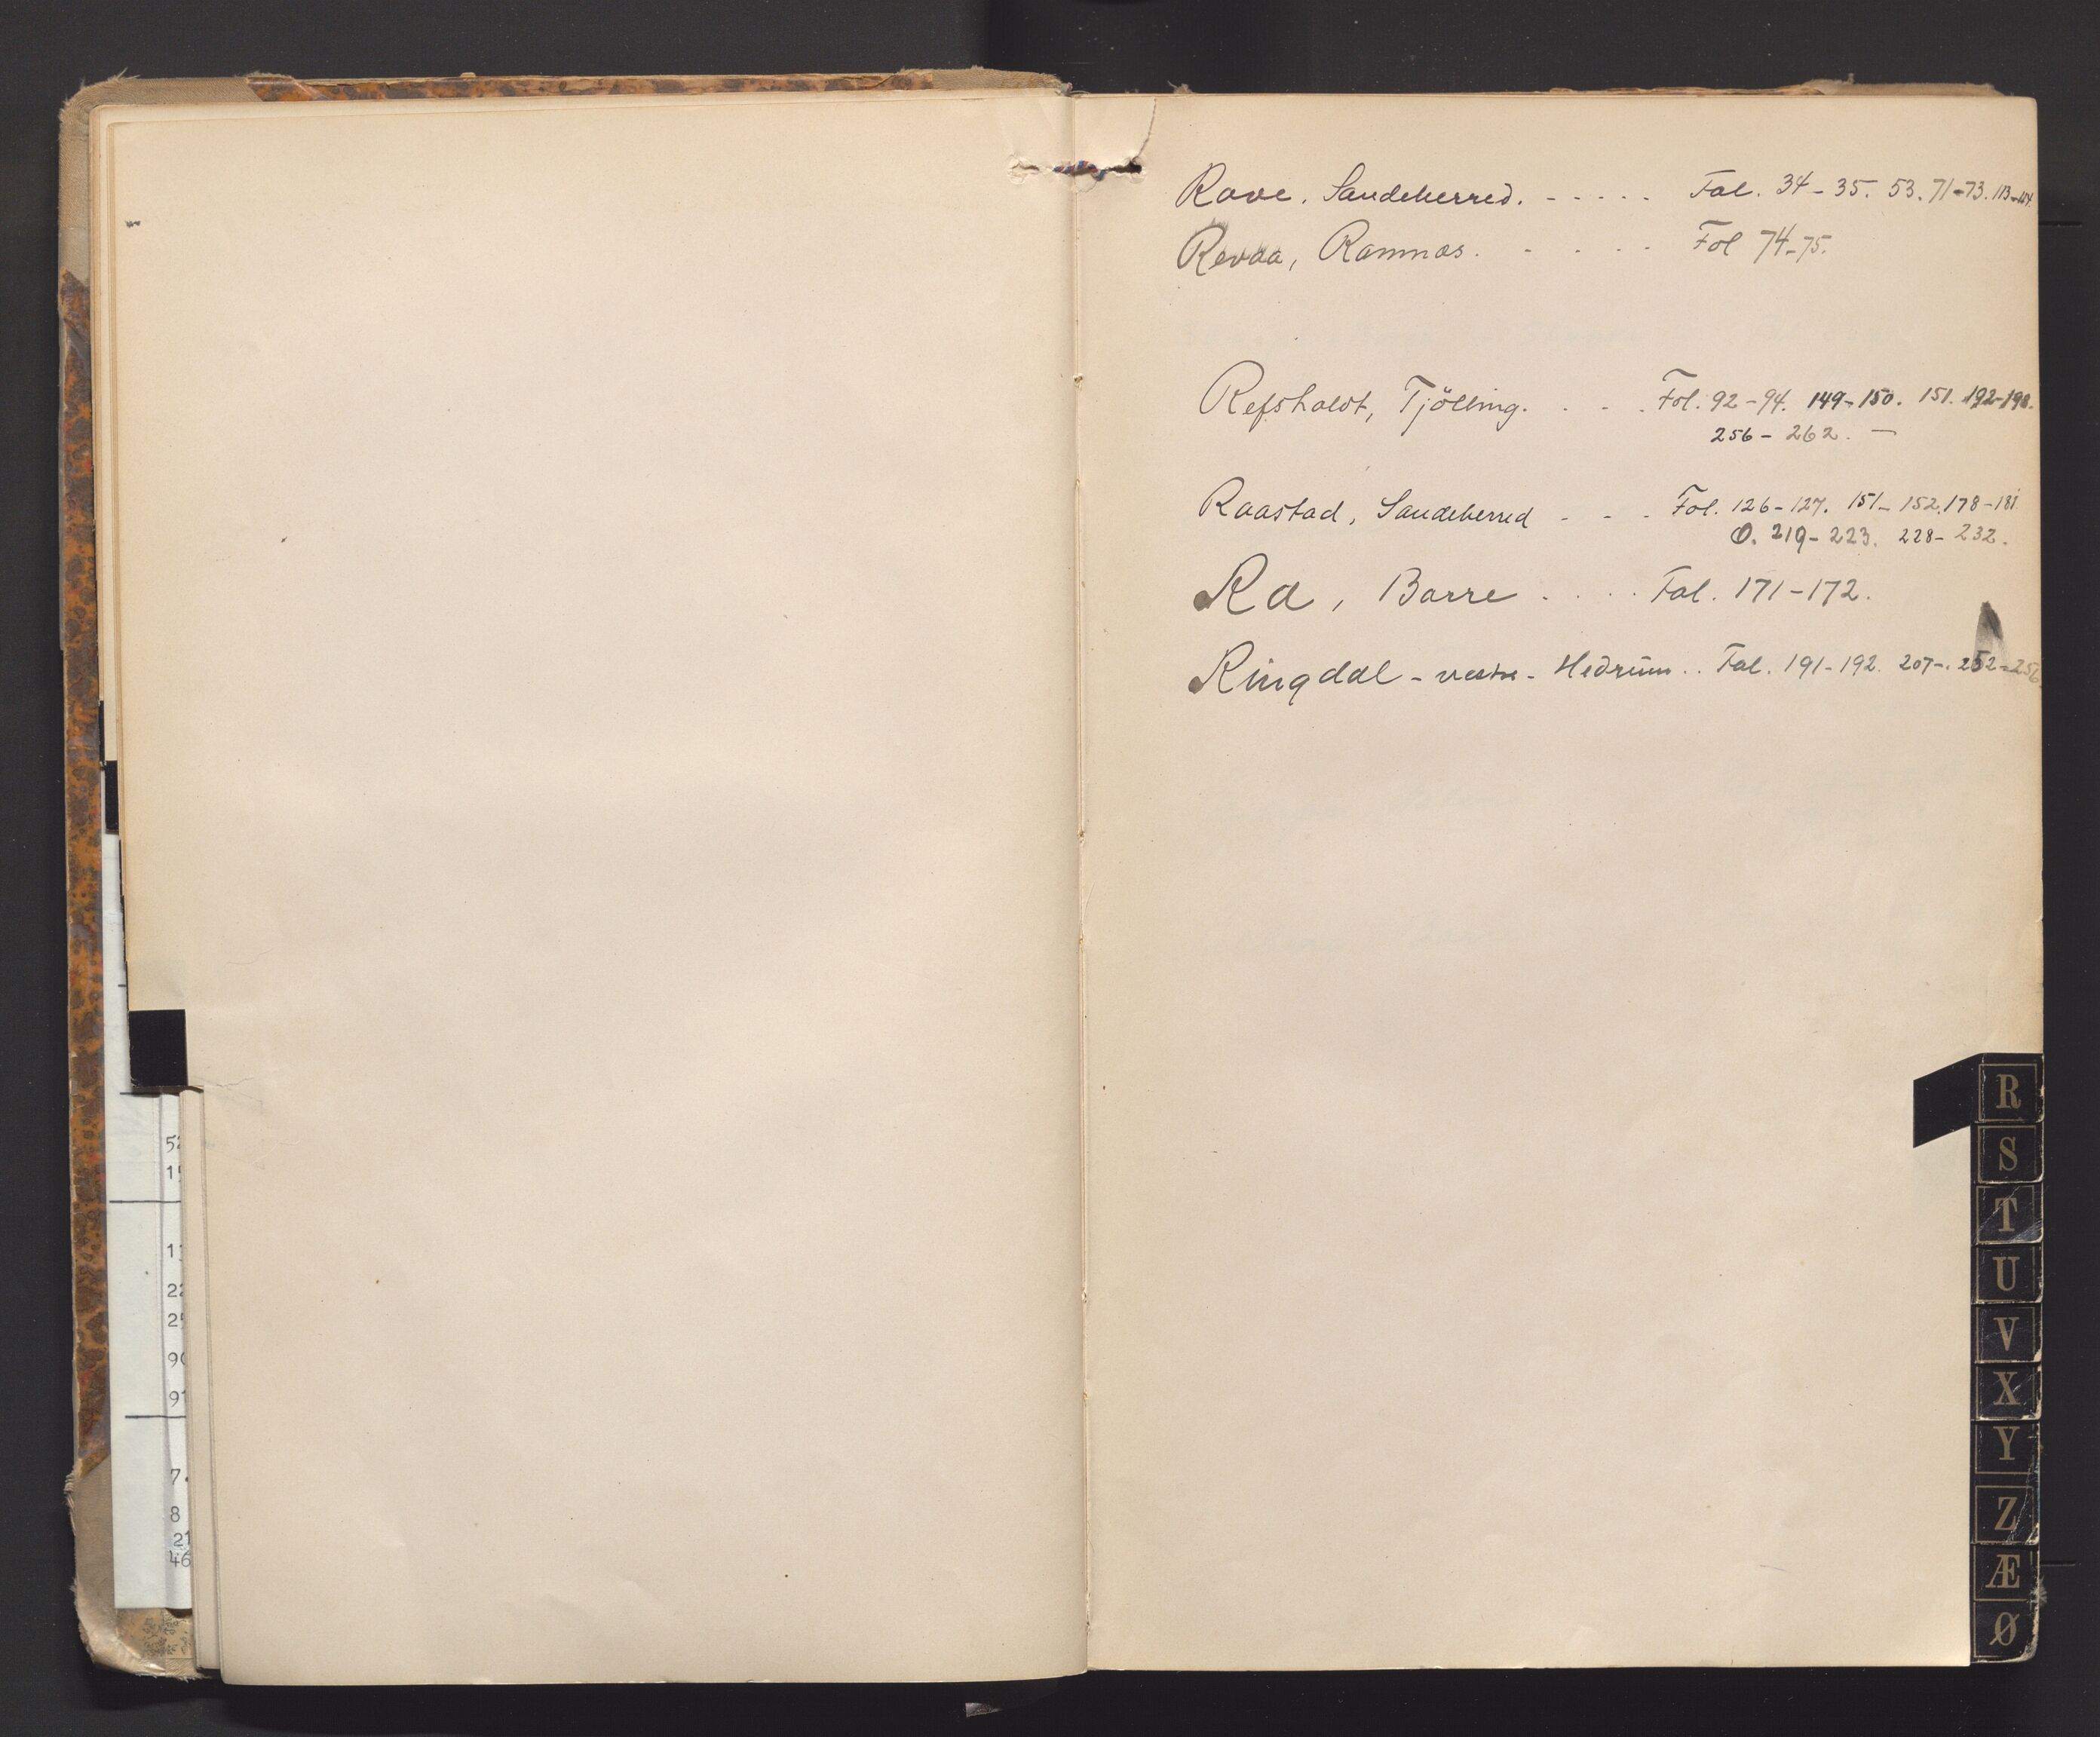 Rove. Sandeherred. - - - - - Fol. 34 - 35. 53. 71-73. 113-114.
Revaa, Ramnæs. - - - - Fol 74-75.
Refsholdt, Tjölling. . - . Fol. 92-94. 149-150. 151. 192-198.
256 - 262. —
Raastad, Sandeherred - - . Fol. 126-127. 151-152. 178-181
O. 219-223. 228-232.
Ra, Borre . . . . Fol. 171-172.
Ringdal - vestre - Hedrum .. Fol. 191-192. 207-. 252-256
R
S
T
U
V
X
Y
Z
Æ
Ø
52
11
22
25
90
91
7.
8
21
46